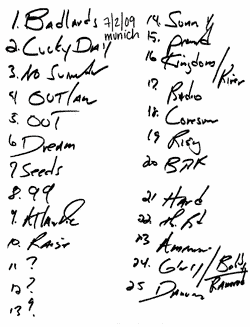 1. Badlands
7/2/09
munich
2. Lucky Day
3. No Surrender
4 OUTLaw
5. OUT
6 Dream
7 Seeds
8. 99
9. Atlantic
10. Raise
11 ?
12 ?
13 ?
14. Sunny
15.
16 Kingdom / River
17. Radio
18.
19 Rising
20
21 Hard
22.
23
24. Glory / Bobby
25 Dancing